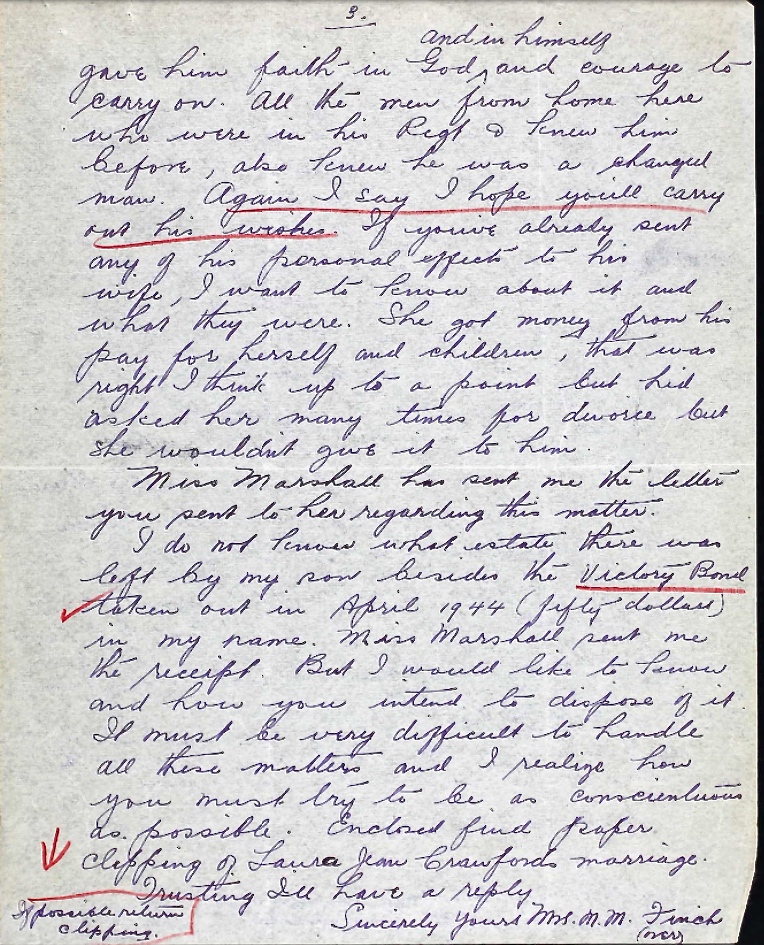 3.
and in himself
gave him faith in God, and courage to
carry on. All the men from home here
who were in his Regt & knew him
before, also knew he was a changed
man. Again I say I hope you'll carry
out his wishes. If you've already sent
any of his personal effects to his
wife, I want to know about it and
what they were. She got money from his
pay for herself and children, that was
right I think up to a point but hed
asked her many times for divorce but
she wouldn't give it to him.
Miss Marshall has sent me the letter
you sent to her regarding this matter.
I do not know what estate there was
left by my son besides the Victory Bond
taken out in April 1944 (fifty dollars)
in my name. Miss Marshall sent me
the receipt. But I would like to know
and how you intend to dispose of it.
It must be very difficult to handle
all these matters and I realize how
you must try to be as conscientuous
as possible. Enclosed find paper
clipping of Laura Jean Crawfords marriage.
Trusting I'll have a reply
If possible return
clipping.
Sincerely Yours Mrs. M. M. Finch
(over)